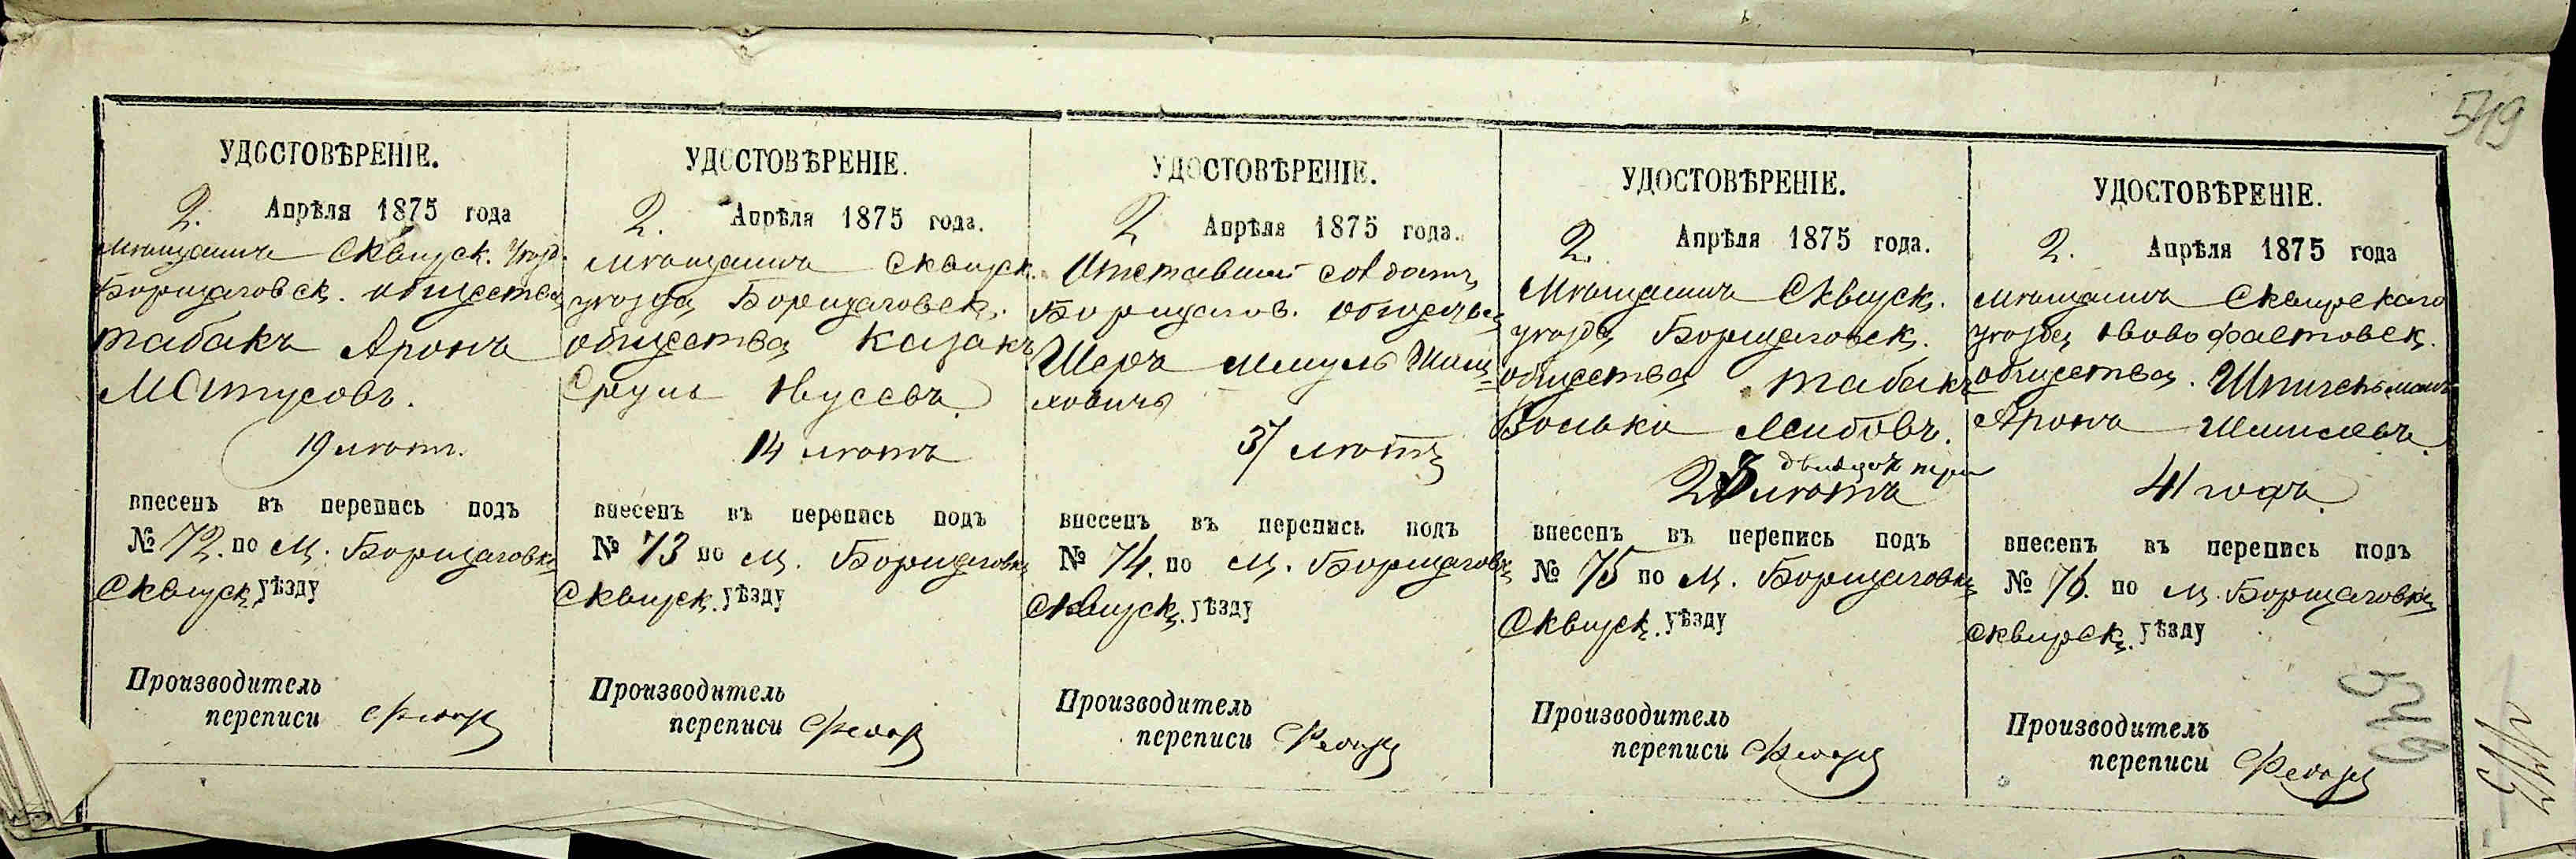 549
УДОСТОВѢРЕНІЕ.
2. Апрѣля 1875 года
Мѣщанинъ Сквирск. уѣзд.
Борщаговск. общества
Табакъ Аронъ
Матусовъ.
19 лѣтъ.
внесенъ въ перепись подъ
№ 72. по м. Борщаговкѣ
Сквирск. уѣзду
Производитель
переписи
УДОСТОВѢРЕНІЕ.
2. Апрѣля 1875 года.
Мѣщанинъ Сквирск.
уѣзда Борщаговск.
общества Казакъ
Сруль Нусевъ
14 лѣтъ
внесенъ въ перепись подъ
№ 73 по м. Борщаговкѣ
Сквирск. уѣзду
Производитель
переписи
УДОСТОВѢРЕНІЕ.
2 Апрѣля 1875 года.
Отставный солдатъ
Борщагов. общества
Шеръ Шмуль
37 лѣтъ
внесенъ въ перепись подъ
№ 74. по м. Борщаговкѣ
Сквирск. уѣзду
Производитель
переписи
УДОСТОВѢРЕНІЕ.
2. Апрѣля 1875 года.
Мѣщанинъ Сквирск.
уѣзда Борщаговск.
общества Табакъ
Волько Лейбовъ.
двадцать три
23 лѣтъ
внесенъ въ перепись подъ
№ 75 по м. Борщаговкѣ
Сквирск. уѣзду
Производитель
переписи
УДОСТОВѢРЕНІЕ.
2. Апрѣля 1875 года
Мѣщанинъ Сквирскаго
уѣзда Новофастовск.
общества. Шпигельманъ
Аронъ
41 годъ
внесенъ въ перепись подъ
№ 76. по м. Борщаговкѣ
Сквирск. уѣзду
Производитель
переписи
549